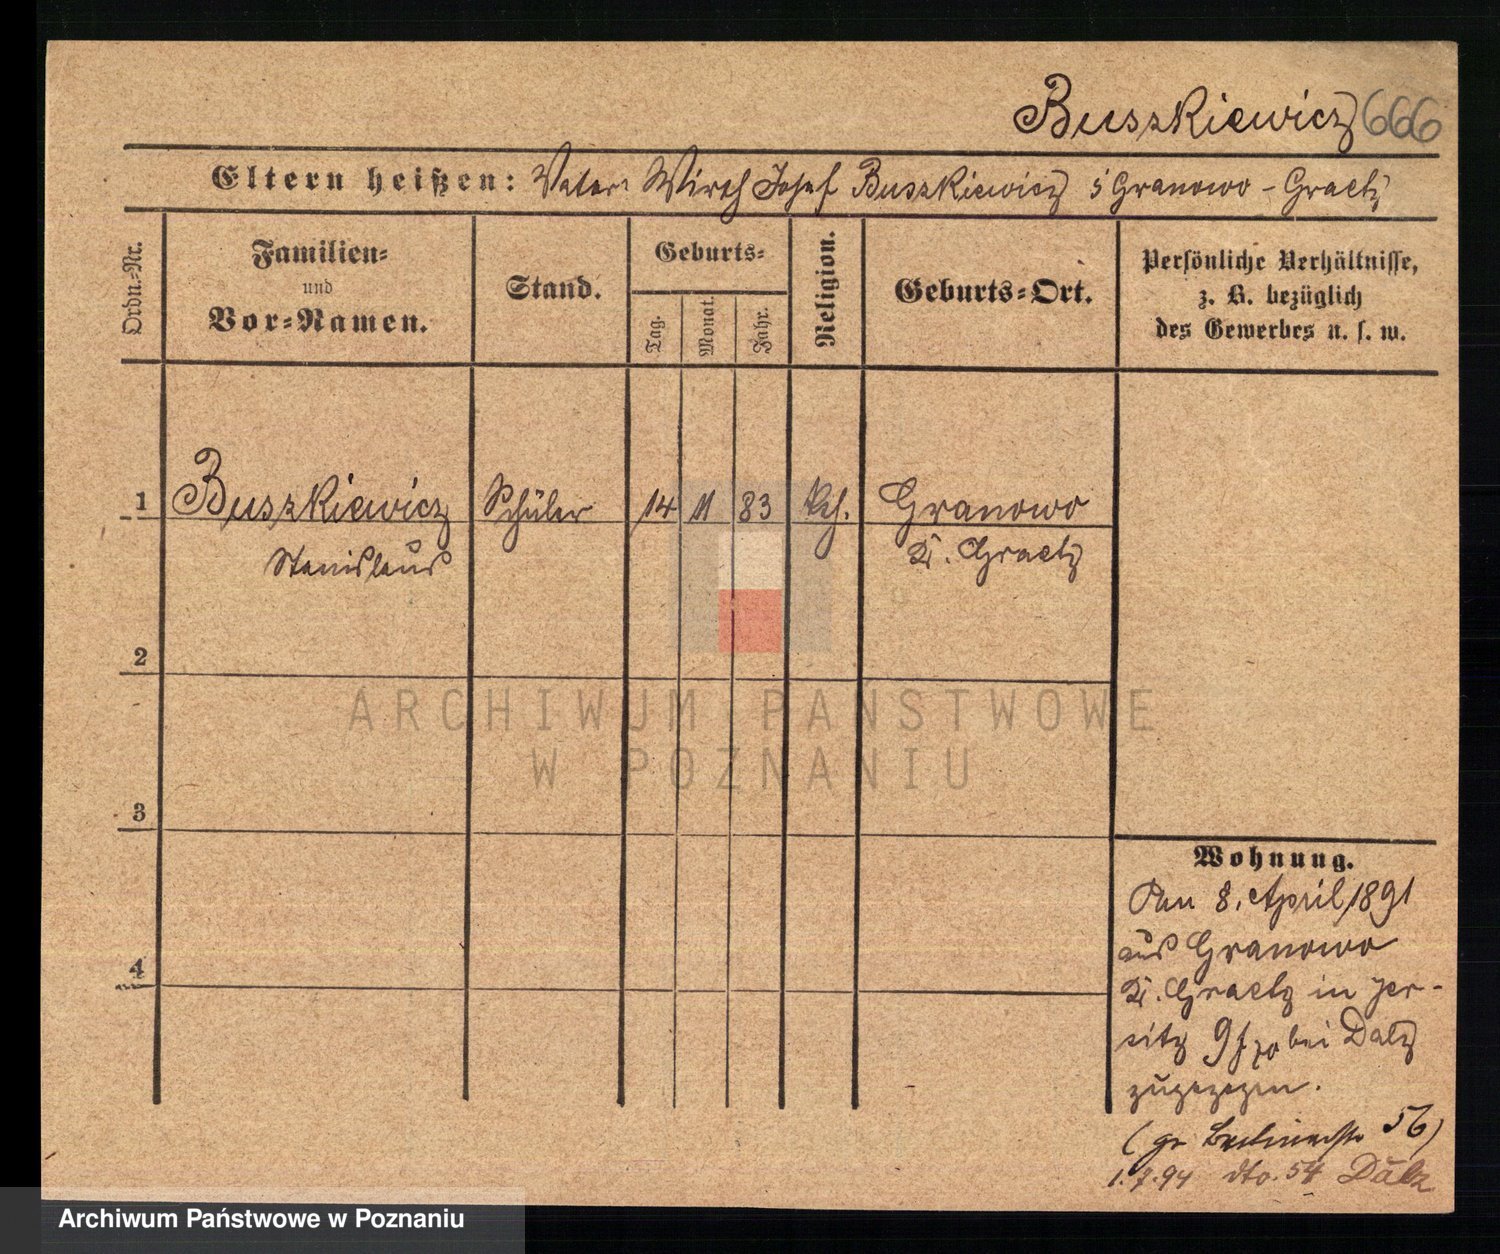 Buszkiewicz 666
Eltern heißen: Vater Wirth Josef Buszkiewicz i Granowo - Graetz
Ordn.-Nr.
Familien-
und
Vor-Namen.
Stand.
Geburts-
Tag.
Monat.
Jahr.
Religion.
Geburts-Ort.
Persönliche Verhältnisse,
z. B. bezüglich
des Gewerbes u. s. w.
1 Buszkiewicz Schüler 14 11 83 kth. Granowo
Stanislaus Kr. Graetz
2
3
4
Wohnung.
Den 8. April 1891
aus Granowo
Kr. Graetz in Jer-
sitz bei Dalz
zugezogen.
(gr Berlinerstr 56)
1.7.94 dto. 54 Dalz
ARCHIWUM PAŃSTWOWE
W POZNANIU
Archiwum Państwowe w Poznaniu